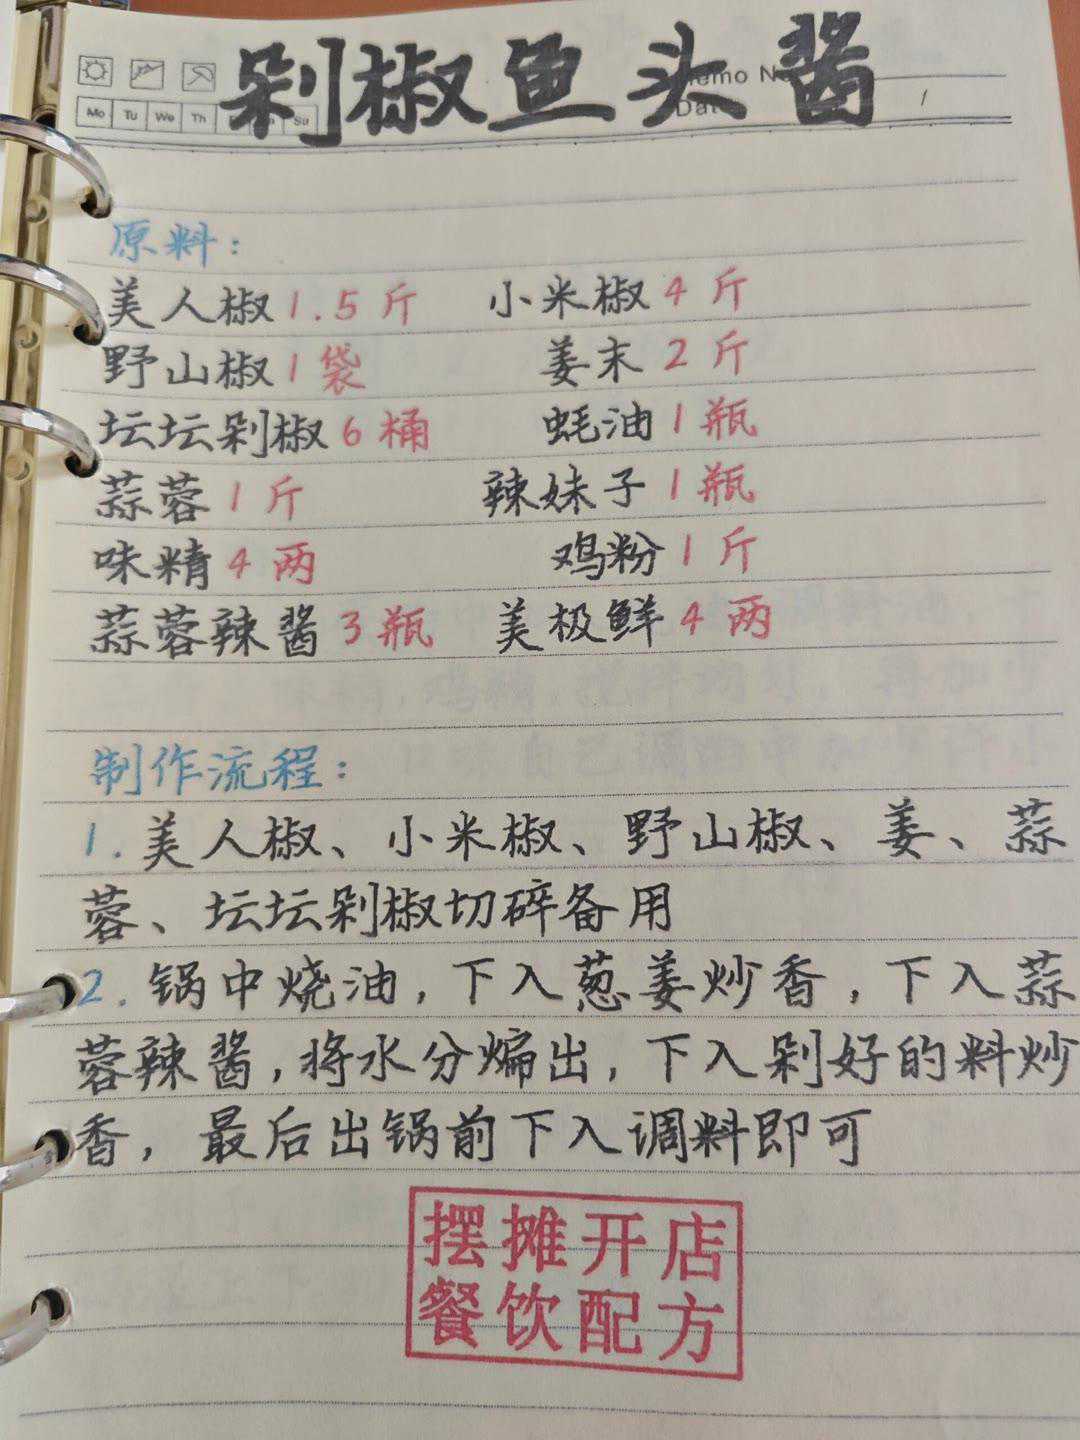 剁椒鱼头酱
Memo No.
Mo Tu We Th Su
Date /
原料:
美人椒1.5斤 小米椒4斤
野山椒1袋 姜末2斤
坛坛剁椒6桶 蚝油1瓶
蒜蓉1斤 辣妹子1瓶
味精4两 鸡粉1斤
蒜蓉辣酱3瓶 美极鲜4两
制作流程:
1.美人椒、小米椒、野山椒、姜、蒜
蓉、坛坛剁椒切碎备用
2.锅中烧油,下入葱姜炒香,下入蒜
蓉辣酱,将水分煸出,下入剁好的料炒
香,最后出锅前下入调料即可
摆摊开店
餐饮配方